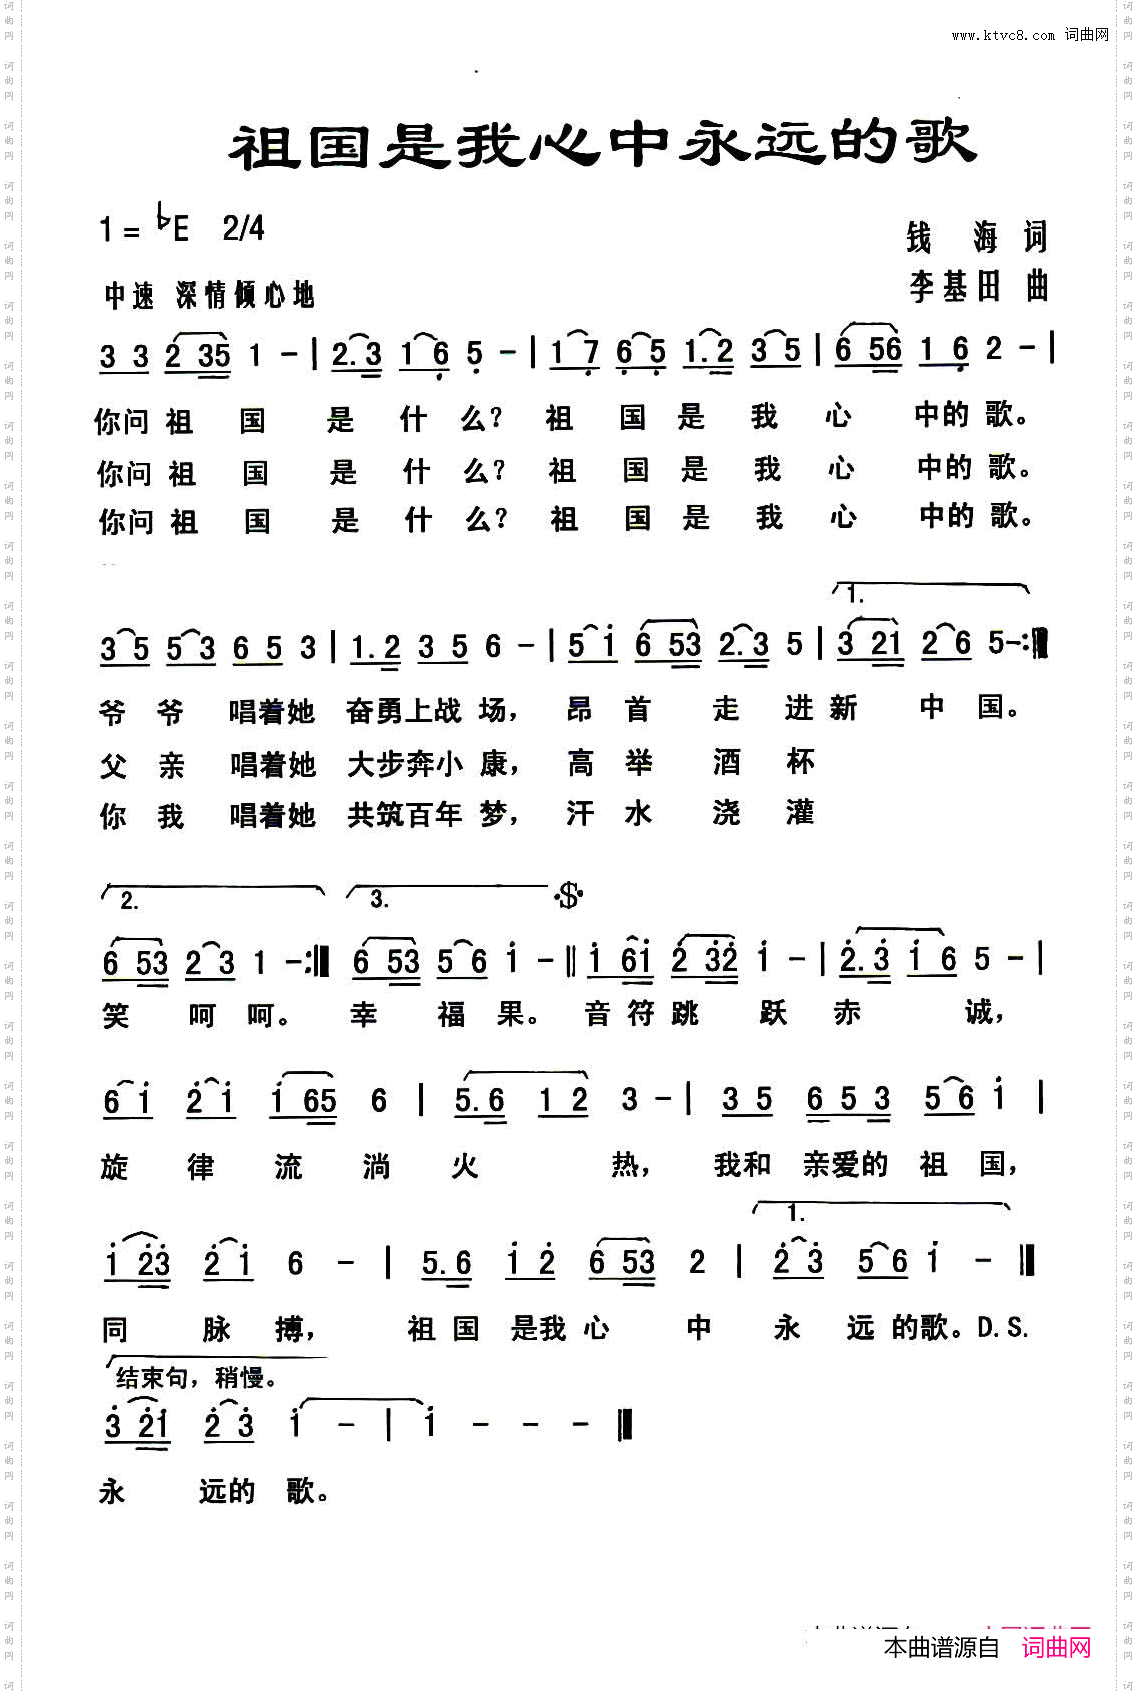 www.ktvc8.com 词曲网
祖国是我心中永远的歌
1 = ♭E 2/4
钱 海 词
中速 深情倾心地
李基田 曲
3 3 2 35 1 - | 2. 3 1 6 5 - | 1 7 6 5 1. 2 3 5 | 6 56 1 6 2 - |
你问 祖 国 是 什 么? 祖 国 是 我 心 中的 歌。
你问 祖 国 是 什 么? 祖 国 是 我 心 中的 歌。
你问 祖 国 是 什 么? 祖 国 是 我 心 中的 歌。
1.
3 5 5 3 6 5 3 | 1. 2 3 5 6 - | 5 i 6 53 2. 3 5 | 3 21 2 6 5 - :‖
爷 爷 唱着她 奋勇上战 场, 昂 首 走 进 新 中 国。
父 亲 唱着她 大步奔小 康, 高 举 酒 杯
你 我 唱着她 共筑百年 梦, 汗 水 浇 灌
2. 3. 𝄋
6 53 2 3 1 - :‖ 6 53 5 6 i - ‖ i 6i 2 32 i - | 2. 3 i 6 5 - |
笑 呵 呵。 幸 福 果。 音 符 跳 跃 赤 诚,
6 i 2 i i 65 6 | 5. 6 1 2 3 - | 3 5 6 5 3 5 6 i |
旋 律 流 淌 火 热, 我和 亲爱的 祖 国,
1.
i 23 2 i 6 - | 5. 6 i 2 6 53 2 | 2 3 5 6 i - ‖
同 脉 搏, 祖 国 是我 心 中 永 远 的歌。D.S.
结束句, 稍慢。
3 2i 2 3 i - | i - - - ‖
永 远的 歌。
本曲谱源自 词曲网
词曲网